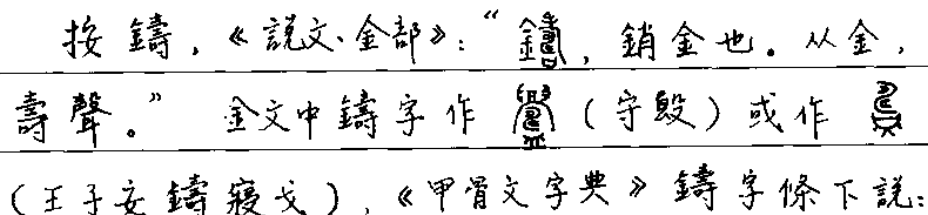 按鑄,《説文·金部》:“鑄,銷金也。从金,
壽聲。” 金文中鑄字作 (守𣪘)或作
(王子安鑄寢戈),《甲骨文字典》鑄字條下説: